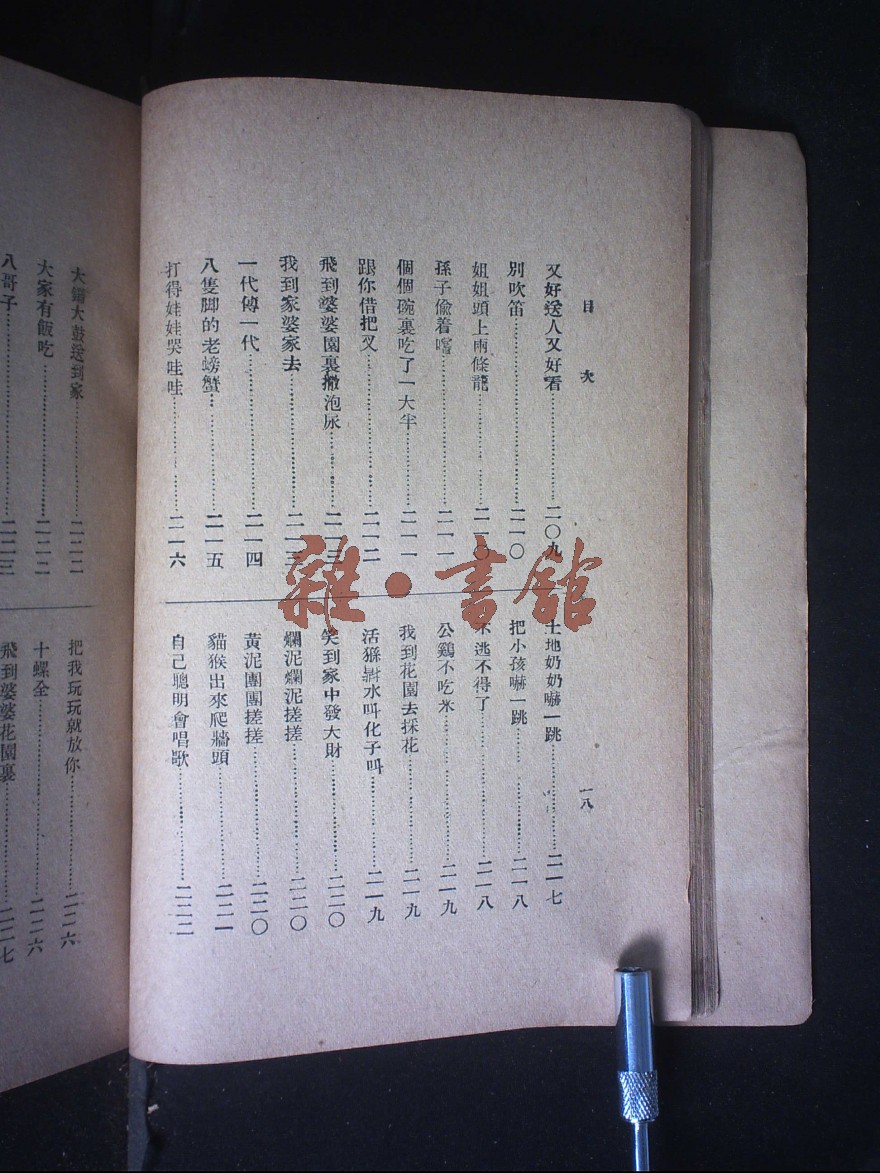 目次
一八
又好送人又好看 二〇九
別吹笛 二一〇
姐姐頭上兩條龍 二一〇
孫子偷着嚐 二一一
個個碗裏吃了一大半 二一一
跟你借把叉 二一二
飛到婆婆園裏撒泡尿 二一三
我到家婆家去 二一三
一代傳一代 二一四
八隻脚的老螃蟹 二一五
打得娃娃哭哇哇 二一六
土地奶奶嚇一跳 二一七
把小孩嚇一跳 二一八
不逃不得了 二一八
公鷄不吃米 二一九
我到花園去採花 二一九
活猻對水叫化子叫 二一九
笑到家中發大財 二二〇
爛泥爛泥搓搓 二二〇
黃泥團團搓搓 二二〇
貓猴出來爬牆頭 二二一
自己聰明會唱歌 二二二
大鑼大鼓送到家 二二二
大家有飯吃 二二二
八哥子 二二三
把我玩玩就放你 二二六
十螺全 二二六
飛到婆婆花園裏 二二七
雜·書館